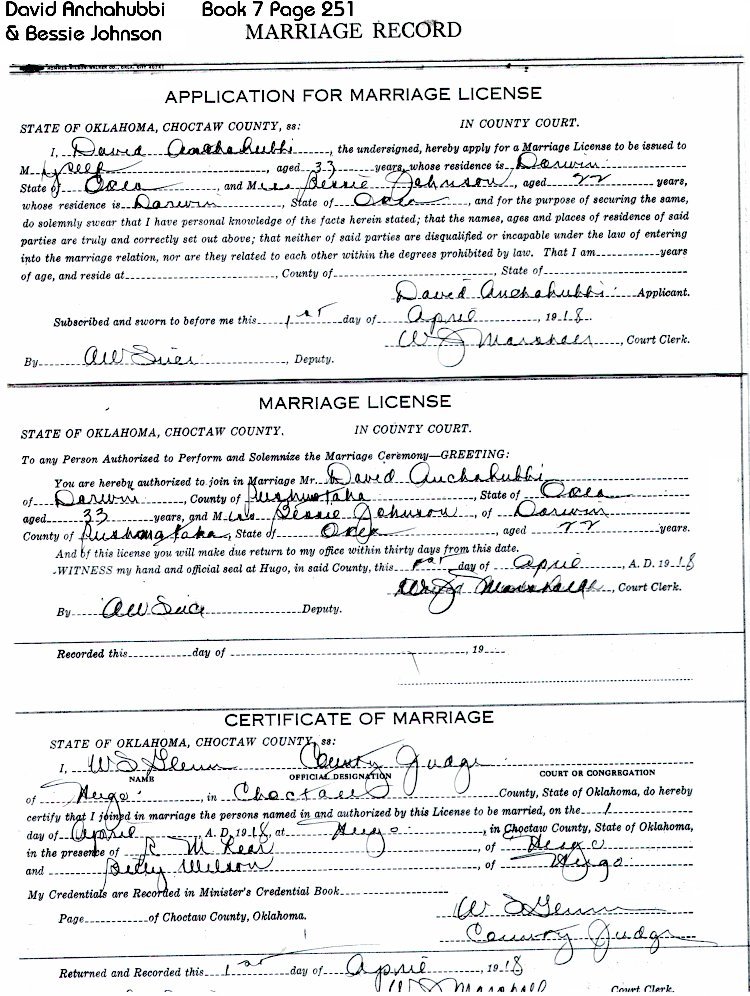 David Anchahubbi Book 7 Page 251
& Bessie Johnson MARRIAGE RECORD
APPLICATION FOR MARRIAGE LICENSE
STATE OF OKLAHOMA, CHOCTAW COUNTY, ss: IN COUNTY COURT.
I, David Anchahubbi, the undersigned, hereby apply for a Marriage License to be issued to
Myself, aged 33 years, whose residence is Darwin
State of Okla and Miss Bessie Johnson, aged 22 years,
whose residence is Darwin, State of Okla, and for the purpose of securing the same,
do solemnly swear that I have personal knowledge of the facts herein stated; that the names, ages and places of residence of said
parties are truly and correctly set out above; that neither of said parties are disqualified or incapable under the law of entering
into the marriage relation, nor are they related to each other within the degrees prohibited by law. That I am years
of age, and reside at County of State of
David Anchahubbi Applicant.
Subscribed and sworn to before me this 1st day of April, 1918.
W J Marshall, Court Clerk.
By AW, Deputy.
MARRIAGE LICENSE
STATE OF OKLAHOMA, CHOCTAW COUNTY. IN COUNTY COURT.
To any Person Authorized to Perform and Solemnize the Marriage Ceremony—GREETING:
You are hereby authorized to join in Marriage Mr. David Anchahubbi
of Darwin, County of Pushmataha, State of Okla
aged 33 years, and Miss Bessie Johnson, of Darwin
County of Pushmataha, State of Okla, aged 22 years.
And of this license you will make due return to my office within thirty days from this date.
WITNESS my hand and official seal at Hugo, in said County, this 1st day of April, A. D. 1918
W J Marshall, Court Clerk.
By AW Deputy.
Recorded this day of, 19
CERTIFICATE OF MARRIAGE
STATE OF OKLAHOMA, CHOCTAW COUNTY, ss:
I, W S Glenn County Judge
NAME OFFICIAL DESIGNATION COURT OR CONGREGATION
of Hugo, in Choctaw County, State of Oklahoma, do hereby
certify that I joined in marriage the persons named in and authorized by this License to be married, on the 1
day of April A. D. 1918, at Hugo, in Choctaw County, State of Oklahoma,
in the presence of R M, of Hugo
and Betty Wilson, of Hugo
My Credentials are Recorded in Minister's Credential Book
Page of Choctaw County, Oklahoma. W S Glenn
County Judge
Returned and Recorded this 1st day of April 1918
W J Marshall Court Clerk.